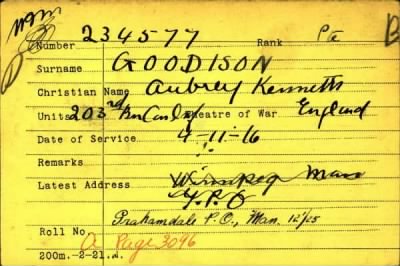 Number 234577 Rank Pte B
Surname GOODISON
Christian Name Aubrey Kenneth
Units 203rd Bn Can Inf Theatre of War England
Date of Service 4-11-16
Remarks
Latest Address Winnipeg Man
G.P.O
Grahamdale P.O., Man. 12/25
Roll No. a Page 3096
200m.-2-21.